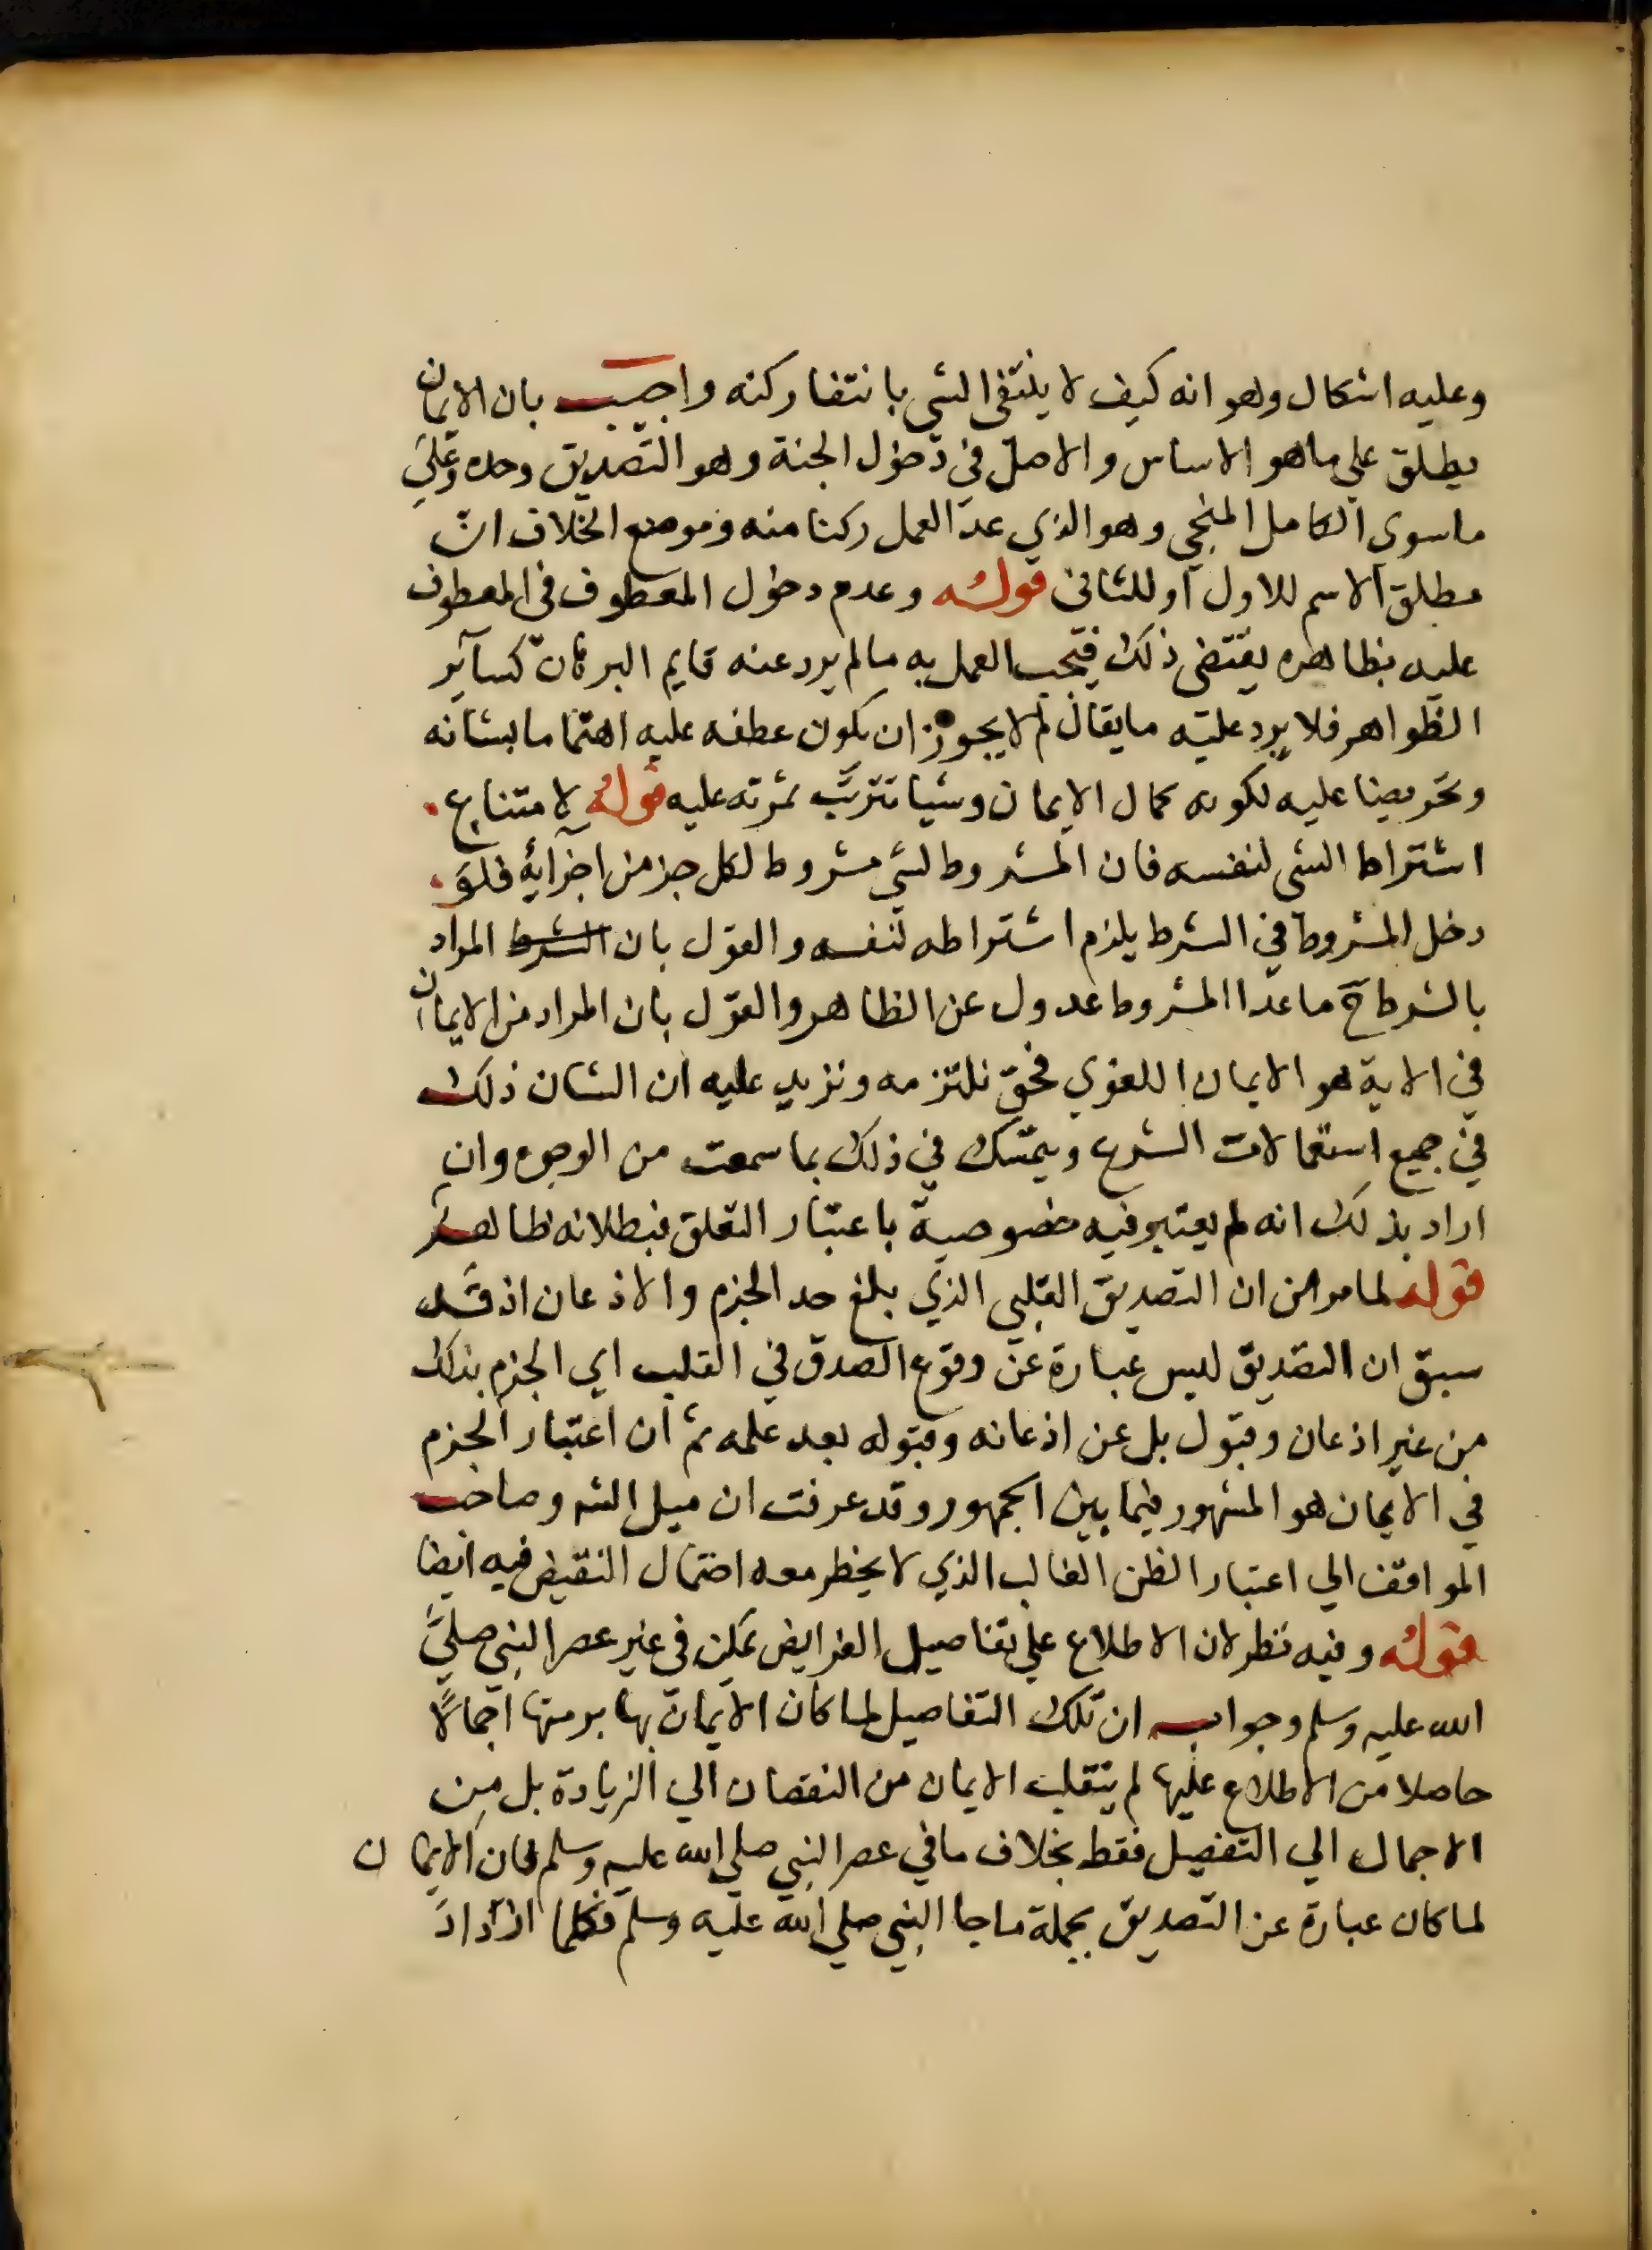 وعليه اشكال وهو انه كيف لا ينتفي الشي بانتفا ركنه واجيب بان الايمان
يطلق علي ما هو الاساس والاصل في دخول الجنة وهو التصديق وحده وعلي
ما سوي الكامل المنجي وهو الذي عد العمل ركنا منه وموضع الخلاف ان
مطلق الاسم للاول او للثاني قوله وعدم دخول المعطوف في المعطوف
عليه بظاهره يقتضي ذلك فيجب العمل به ما لم يرد عنه قايم البرهان كساير
الظواهر فلا يرد عليه ما يقال لم لا يجوز ان يكون عطفه عليه اهتماما بشانه
وتحريضا عليه لكونه كمال الايمان وشيا تترتب ثمرته عليه قوله لامتناع
اشتراط الشي لنفسه فان المشروط لشي مشروط لكل جز من اجزايه فلو
دخل المشروط في الشرط يلزم اشتراطه لنفسه والقول بان الشرط المراد
بالشرط ح ما عدا المشروط عدول عن الظاهر والقول بان المراد من الايمان
في الاية هو الايمان اللغوي فحق نلتزمه ونزيد عليه ان الشان ذلك
في جميع استعمالات الشرع ويتمسك في ذلك بما سمعت من الوجوه وان
اراد بذلك انه لم يعتبر فيه خصوصية باعتبار التعلق فبطلانه ظاهر
قوله لما مر من ان التصديق القلبي الذي بلغ حد الجزم والاذعان اذ قد
سبق ان التصديق ليس عبارة عن وقوع الصدق في القلب اي الجزم بذلك
من غير اذعان وقبول بل عن اذعانه وقبوله بعد علمه ثم ان اعتبار الجزم
في الايمان هو المشهور فيما بين الجمهور وقد عرفت ان ميل الشه وصاحب
المواقف الي اعتبار الظن الغالب الذي لا يخطر معه احتمال النقيض فيه ايضا
قوله وفيه نظر لان الاطلاع علي تفاصيل الفرايض ممكن في غير عصر النبي صلي
الله عليه وسلم وجوابه ان تلك التفاصيل لما كان الايمان بها برمتها اجمالا
حاصلا من الاطلاع عليها لم ينقلب الايمان من النقصان الي الزيادة بل من
الاجمال الي التفصيل فقط بخلاف ما في عصر النبي صلي الله عليه وسلم فان الايمان
لما كان عبارة عن التصديق بجملة ما جا النبي صلي الله عليه وسلم فكلما ازداد